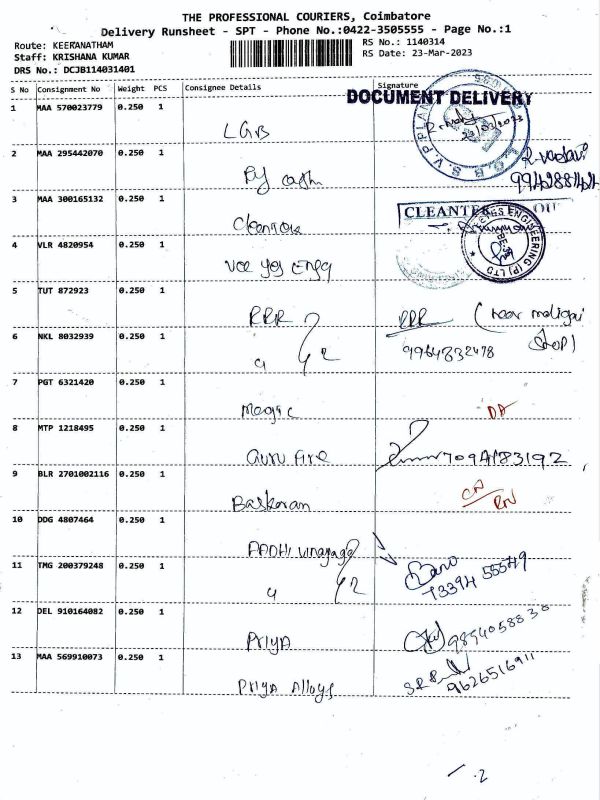 THE PROFESSIONAL COURIERS, Coimbatore
Delivery Runsheet - SPT - Phone No.:0422-3505555 - Page No.:1
Route: KEERANATHAM
RS No.: 1140314
Staff: KRISHANA KUMAR
RS Date: 23-Mar-2023
DRS No.: DCJB114031401
S No Consignment No Weight PCS Consignee Details Signature
DOCUMENT DELIVERY
1 MAA 570023779 0.250 1
LGB
23/03/2023
2 MAA 295442070 0.250 1
By cash
3 MAA 300165132 0.250 1
CLEANTEK
4 VLR 4820954 0.250 1
Vee yes Engg
5 TUT 872923 0.250 1
RRR RRR (near maligai
Shop)
6 NKL 8032939 0.250 1
9964832478
7 PGT 6321420 0.250 1
Magic DA
8 MTP 1218495 0.250 1
Guru Fire
9 BLR 2701002116 0.250 1
Baskaran
10 DDG 4807464 0.250 1
AADHI vinayaga
11 TMG 200379248 0.250 1
73394 55549
12 DEL 910164082 0.250 1
PRIYA
13 MAA 569910073 0.250 1
Priya Alloys 9626516911